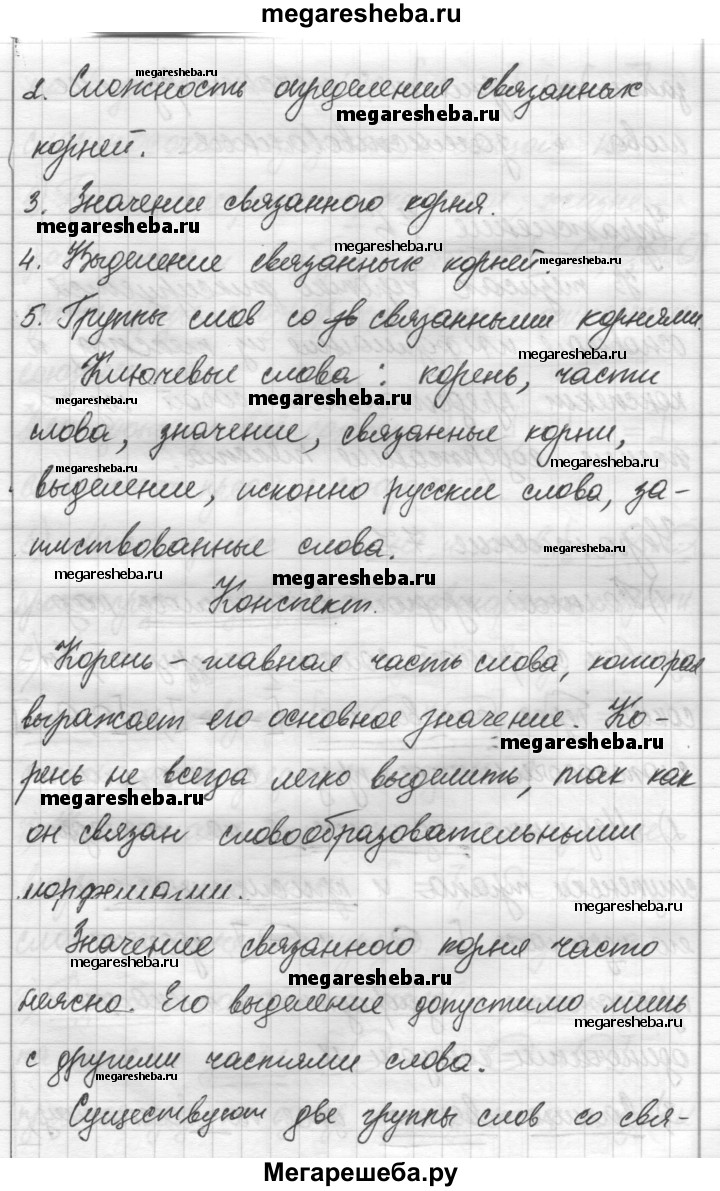 megaresheba.ru
megaresheba.ru
2. Сложность определения связанных
megaresheba.ru
корней.
3. Значение связанного корня.
megaresheba.ru
megaresheba.ru
4. Выделение связанных корней.
megaresheba.ru
5. Группы слов со связанными корнями.
megaresheba.ru
Ключевые слова: корень, части
megaresheba.ru
megaresheba.ru
слова, значение, связанные корни,
megaresheba.ru
megaresheba.ru
выделение, исконно русские слова, за-
имствованные слова.
megaresheba.ru
megaresheba.ru
megaresheba.ru
Конспект.
Корень – главная часть слова, которая
выражает его основное значение. Ко-
megaresheba.ru
рень не всегда легко выделить, так как
megaresheba.ru
он связан словообразовательными
морфемами.
megaresheba.ru
Значение связанного корня часто
megaresheba.ru
megaresheba.ru
неясно. Его выделение допустимо лишь
megaresheba.ru
с другими частями слова.
megaresheba.ru
Существуют две группы слов со свя-
Мегарешеба.ру